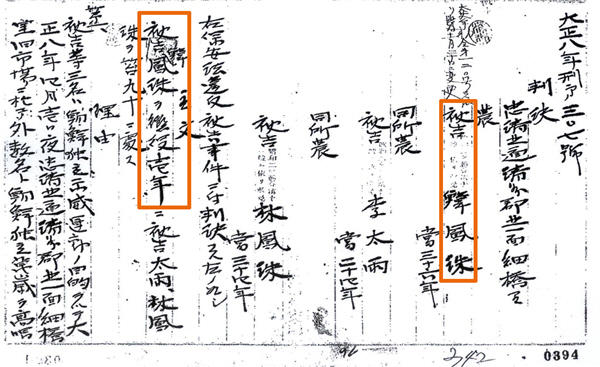 大正八年刑第三〇七號
判決
忠清北道清州郡北一面細橋里
農
被告 韓鳳洙
當三十六年
同所農
被告 李太雨
當二十七年
同所農
被告 林鳳洙
當三十四年
右保安法違反被告事件ニ付判決スル左ノ如シ
主文
被告鳳洙ヲ懲役壱年ニ被告太雨林鳳
韓
洙ヲ笞九十ニ處ス
理由
被告等三名ハ朝鮮獨立示威運動ノ目的ヲ以テ大
正八年四月壱日夜忠清北道清州郡北一面細橋
里旧市場ニ於テ外数名ト朝鮮獨立萬歳ヲ高唱
342
0394